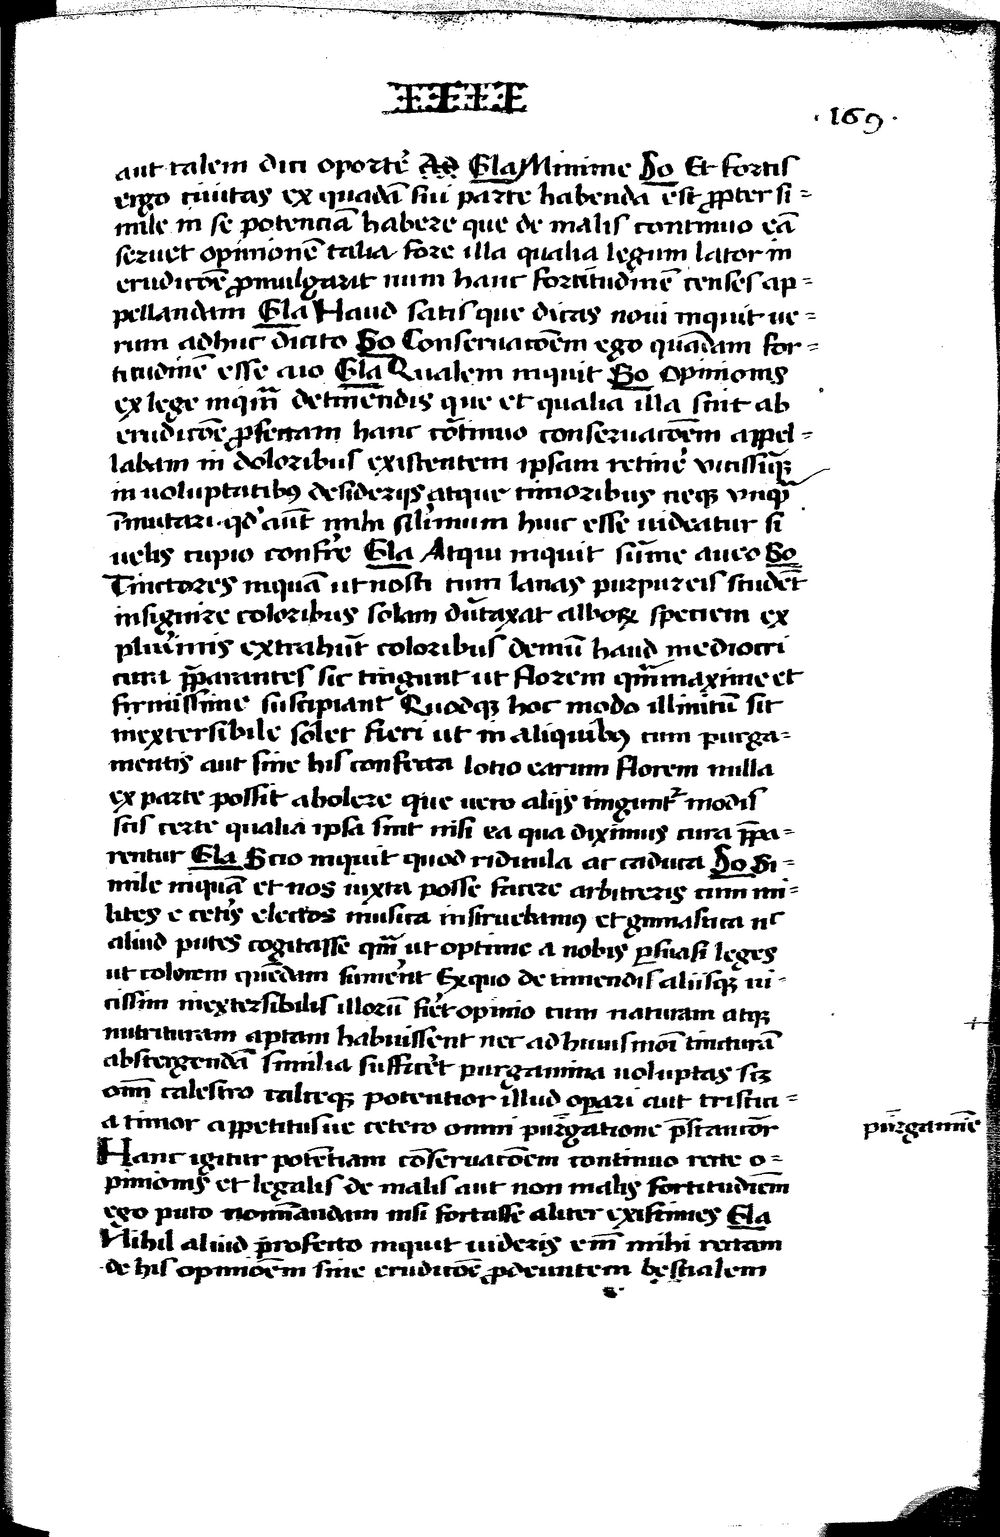 IIII
·169·
aut talem dici oportē Gla Minime So Et fortis
ergo ciuitas ex quadā sui parte habenda est ꝓpter si=
mile in se potenciā habere que de malis continuo eā
seruet opinionē talia fore illa qualia legum lator in
erudicōe ꝓmulgarit num hanc fortitudinē censes ap=
pellandam Gla Haud satis que dicas noui inquit ue=
rum adhuc dicito So Conseruacōem ego quādam for=
titudinē esse aio Gla Qualem inquit So Opinionis
ex lege inqm̄ de timendis que et qualia illa sint ab
erudicōe ꝓfectam hanc cōtinuo conseruacōem appel=
labam in doloribus existentem ipsam retinē vicissiqꝫ
in uoluptatibꝯ desiderijs atque timoribus neqꝫ vnqᷓ
īmutari qd' aūt mihi sil'imum huic esse uideatur si
uelis cupio confr̄e Gla Atqui inquit sūme aueo So
Tinctores inquā ut nosti cum lanas purpureis studēt
insignire coloribus solam dūtaxat alboꝝ speciem ex
plur̄imis extrahūt coloribus demū haud mediocri
cura p̄parantes sic tingunt ut florem qm̄ maxime et
firmissime suscipiant Quodqꝫ hoc modo illinitū sit
inextersibile solet fieri ut in aliquibꝯ cum purga=
mentis aut sine his confecta lotio earum florem nulla
ex parte possit abolere que uero alijs tingunt᷑ modis
scis certe qualia ipsa sint nisi ea qua diximus cura p̄pa=
rentur Gla Scio inquit quod ridicula ac caduca So Si=
mile inquā et nos iuxta posse facere arbitreris cum mi=
lites e cet̄is electos musica instruebamꝯ et gimnastica nc
aliud putes cogitasse qm̄ ut optime a nobis ꝑsuasi leges
ut colorem quēdam sumer̄nt Ex quo de timendis aliisqꝫ ui=
cissim inextersibilis illorū fier̄et opinio cum naturam atqꝫ
nutrituram aptam habuissent nec ad huiusmōi tincturā
abstergendā similia sufficer̄et purgamina uoluptas scꝫ
om̄i calestro taliqꝫ potentior illud oꝑari aut tristici=
a timor appetitusue cetero omni pūrgatione p̄stancōr
pūrgamīe
Hanc igitur potētiam cōseruacōem continuo recte o=
pinionis et legalis de malis aut non malis fortitudīem
ego puto nomīandam nisi fortasse aliter existimes Gla
Nihil aliud profecto inquit uideris em̄ mihi rectam
de his opiniōem sine erudicōe ꝓdeuntem bestialem